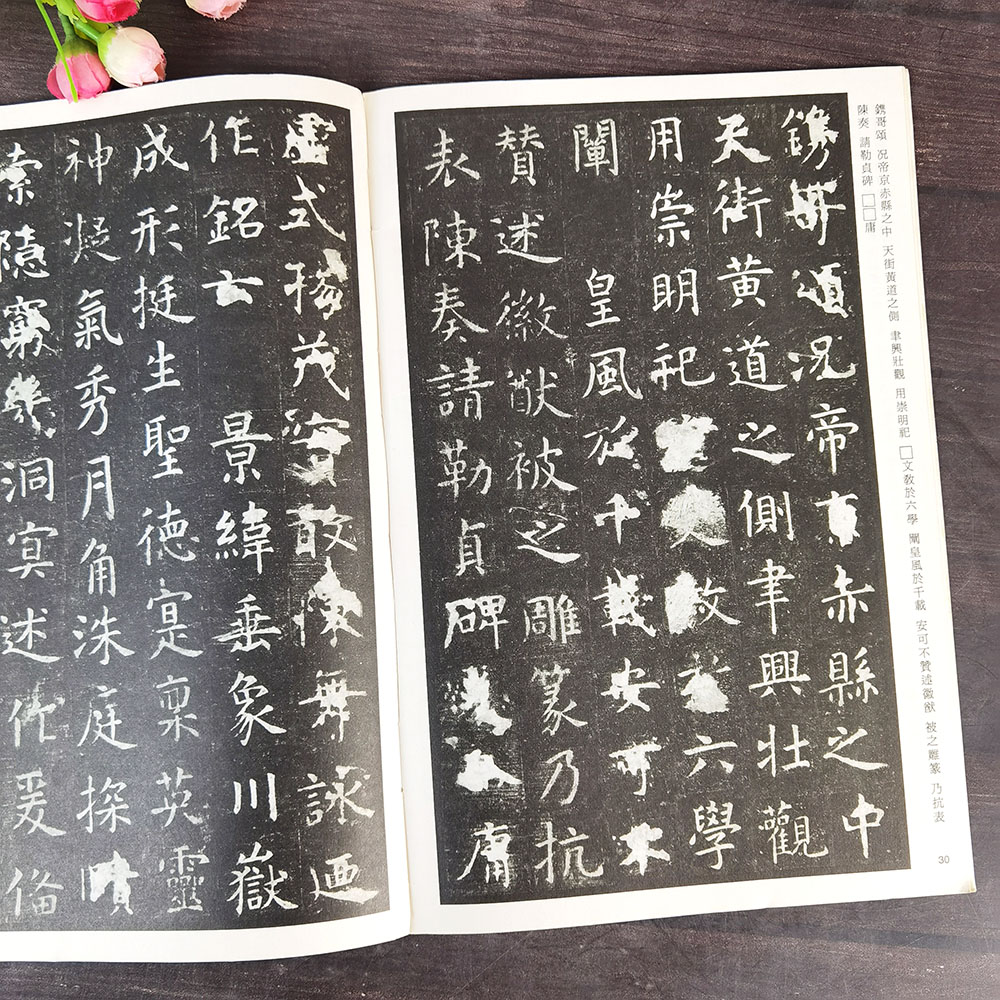 鐫哥頌 况帝京赤縣之中 天街黃道之側 聿興壯觀 用崇明祀 □文教於六學 闡皇風於千載 安可不贊述徽猷 被之雕篆 乃抗表
陳奏 請勒貞碑 □□庸
鐫哥頌况帝京赤縣之中
天街黃道之側聿興壯觀
用崇明祀文教於六學
闡皇風於千載安可不
贊述徽猷被之雕篆乃抗
表陳奏請勒貞碑庸
30
虛式揚茂實敢陳舞詠迺
作銘云 景緯垂象川嶽
成形挺生聖德寔稟英靈
神凝氣秀月角洙庭探賾
索隱窮幾洞冥述作爰備